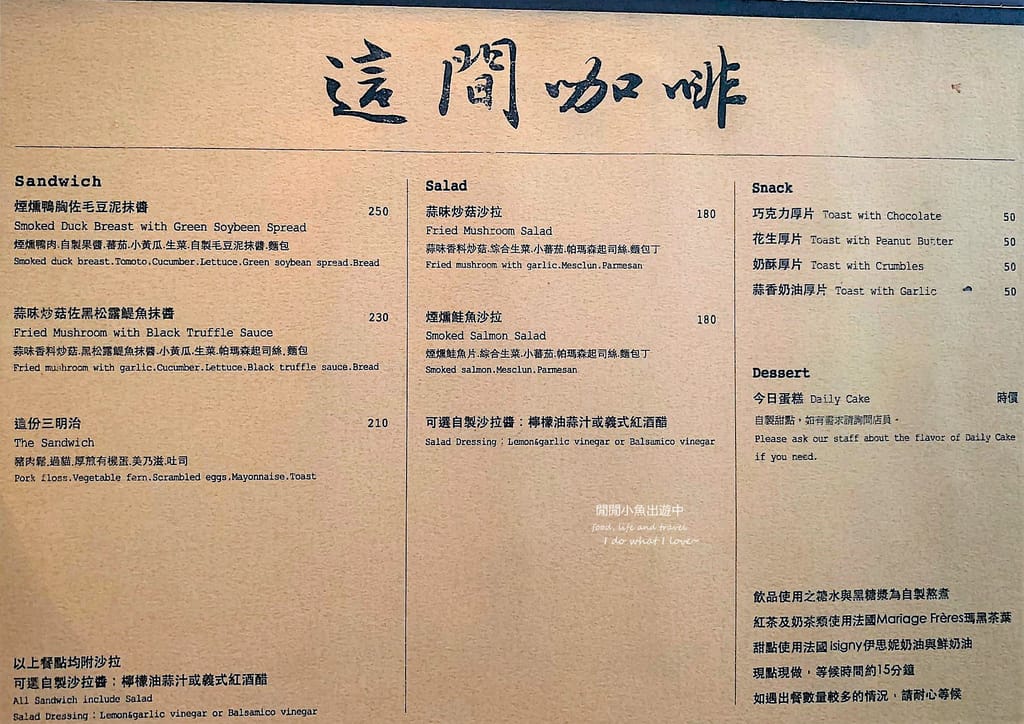 這間咖啡
Sandwich
煙燻鴨胸佐毛豆泥抹醬 250
Smoked Duck Breast with Green Soybeen Spread
煙燻鴨肉.自製果醬.蕃茄.小黃瓜.生菜.自製毛豆泥抹醬.麵包
Smoked duck breast.Tomoto.Cucumber.Lettuce.Green soybean spread.Bread
蒜味炒菇佐黑松露鯷魚抹醬 230
Fried Mushroom with Black Truffle Sauce
蒜味香料炒菇.黑松露鯷魚抹醬.小黃瓜.生菜.帕瑪森起司絲.麵包
Fried mushroom with garlic.Cucumber.Lettuce.Black truffle sauce.Bread
這份三明治 210
The Sandwich
豬肉鬆.過貓.厚煎有機蛋.美乃滋.吐司
Pork floss.Vegetable fern.Scrambled eggs.Mayonnaise.Toast
以上餐點均附沙拉
可選自製沙拉醬：檸檬油蒜汁或義式紅酒醋
All Sandwich include Salad
Salad Dressing：Lemon&garlic vinegar or Balsamico vinegar
Salad
蒜味炒菇沙拉 180
Fried Mushroom Salad
蒜味香料炒菇.綜合生菜.小蕃茄.帕瑪森起司絲.麵包丁
Fried mushroom with garlic.Mesclun.Parmesan
煙燻鮭魚沙拉 180
Smoked Salmon Salad
煙燻鮭魚片.綜合生菜.小蕃茄.帕瑪森起司絲.麵包丁
Smoked salmon.Mesclun.Parmesan
可選自製沙拉醬：檸檬油蒜汁或義式紅酒醋
Salad Dressing：Lemon&garlic vinegar or Balsamico vinegar
閒閒小魚出遊中
food, life and travel
I do what I love~
Snack
巧克力厚片 Toast with Chocolate 50
花生厚片 Toast with Peanut Butter 50
奶酥厚片 Toast with Crumbles 50
蒜香奶油厚片 Toast with Garlic 50
Dessert
今日蛋糕 Daily Cake 時價
自製甜點，如有需求請詢問店員。
Please ask our staff about the flavor of Daily Cake
if you need.
飲品使用之糖水與黑糖漿為自製熬煮
紅茶及奶茶類使用法國Mariage Frères瑪黑茶葉
甜點使用法國Isigny伊思妮奶油與鮮奶油
現點現做，等候時間約15分鐘
如遇出餐數量較多的情況，請耐心等候